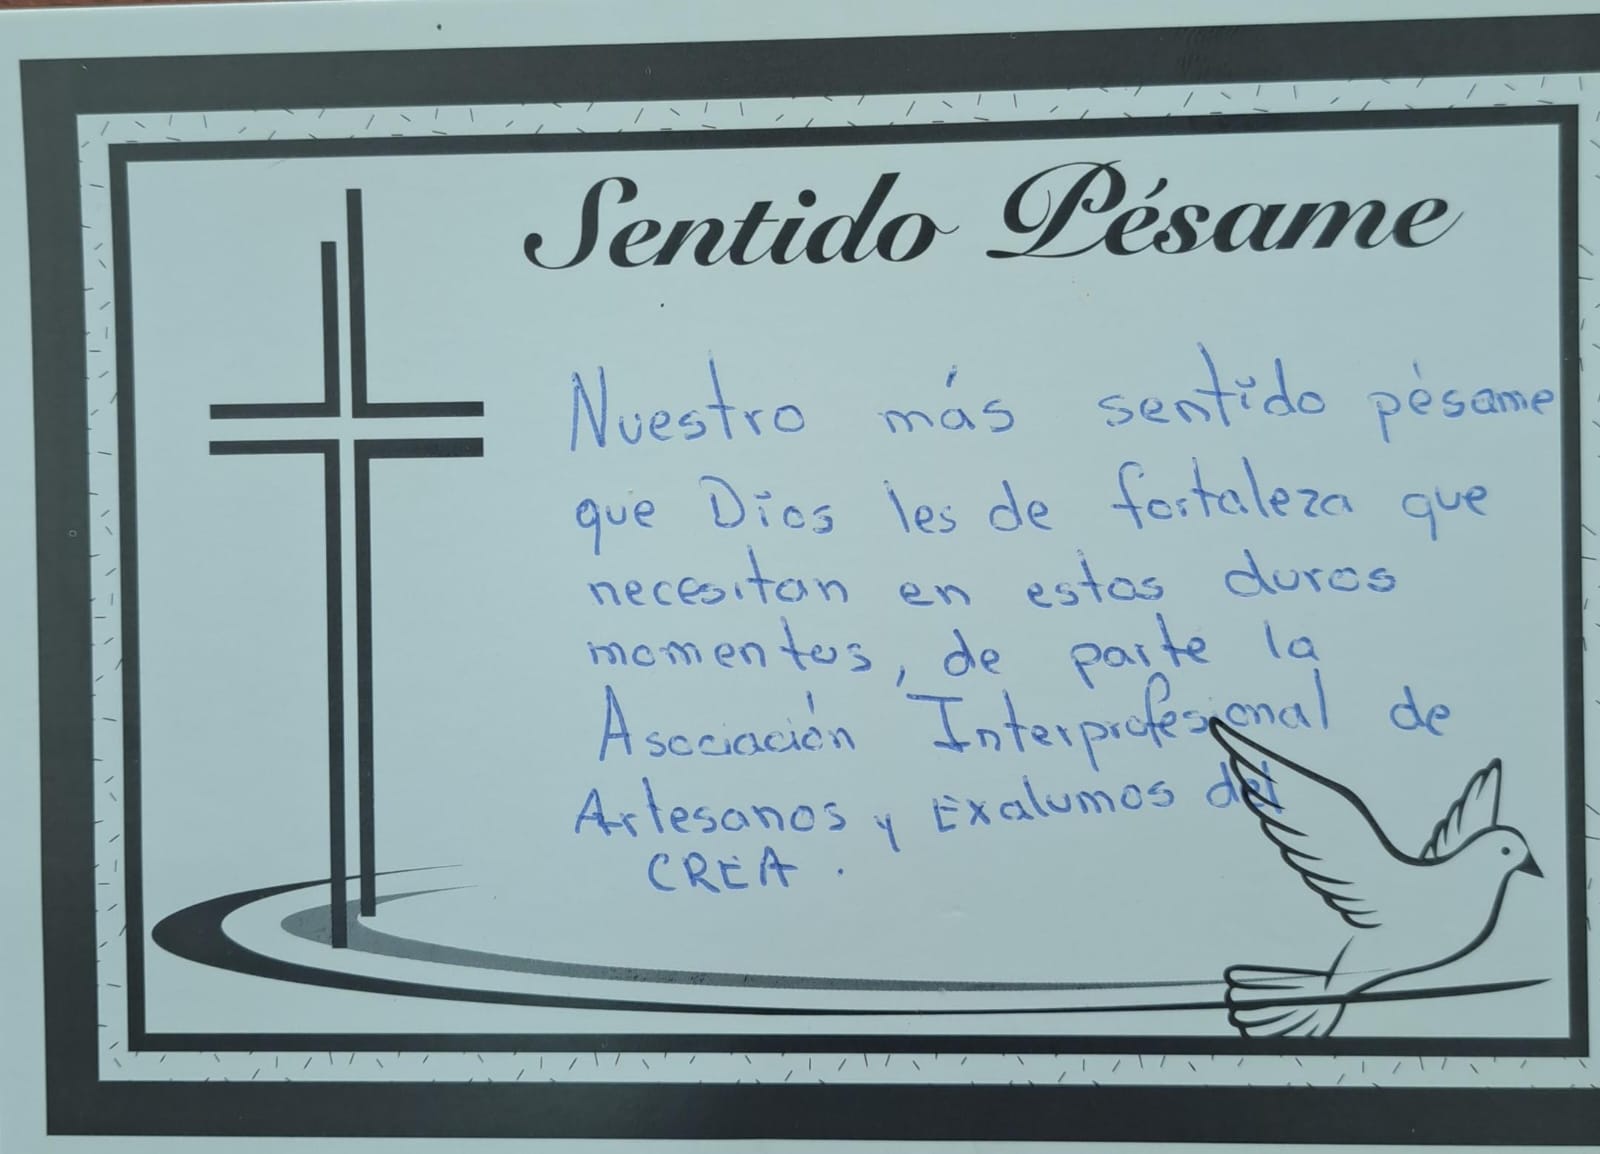 Sentido Pésame
Nuestro más sentido pésame
que Dios les de fortaleza que
necesitan en estos duros
momentos, de parte la
Asociación Interprofesional de
Artesanos y Exalumos del
CREA.